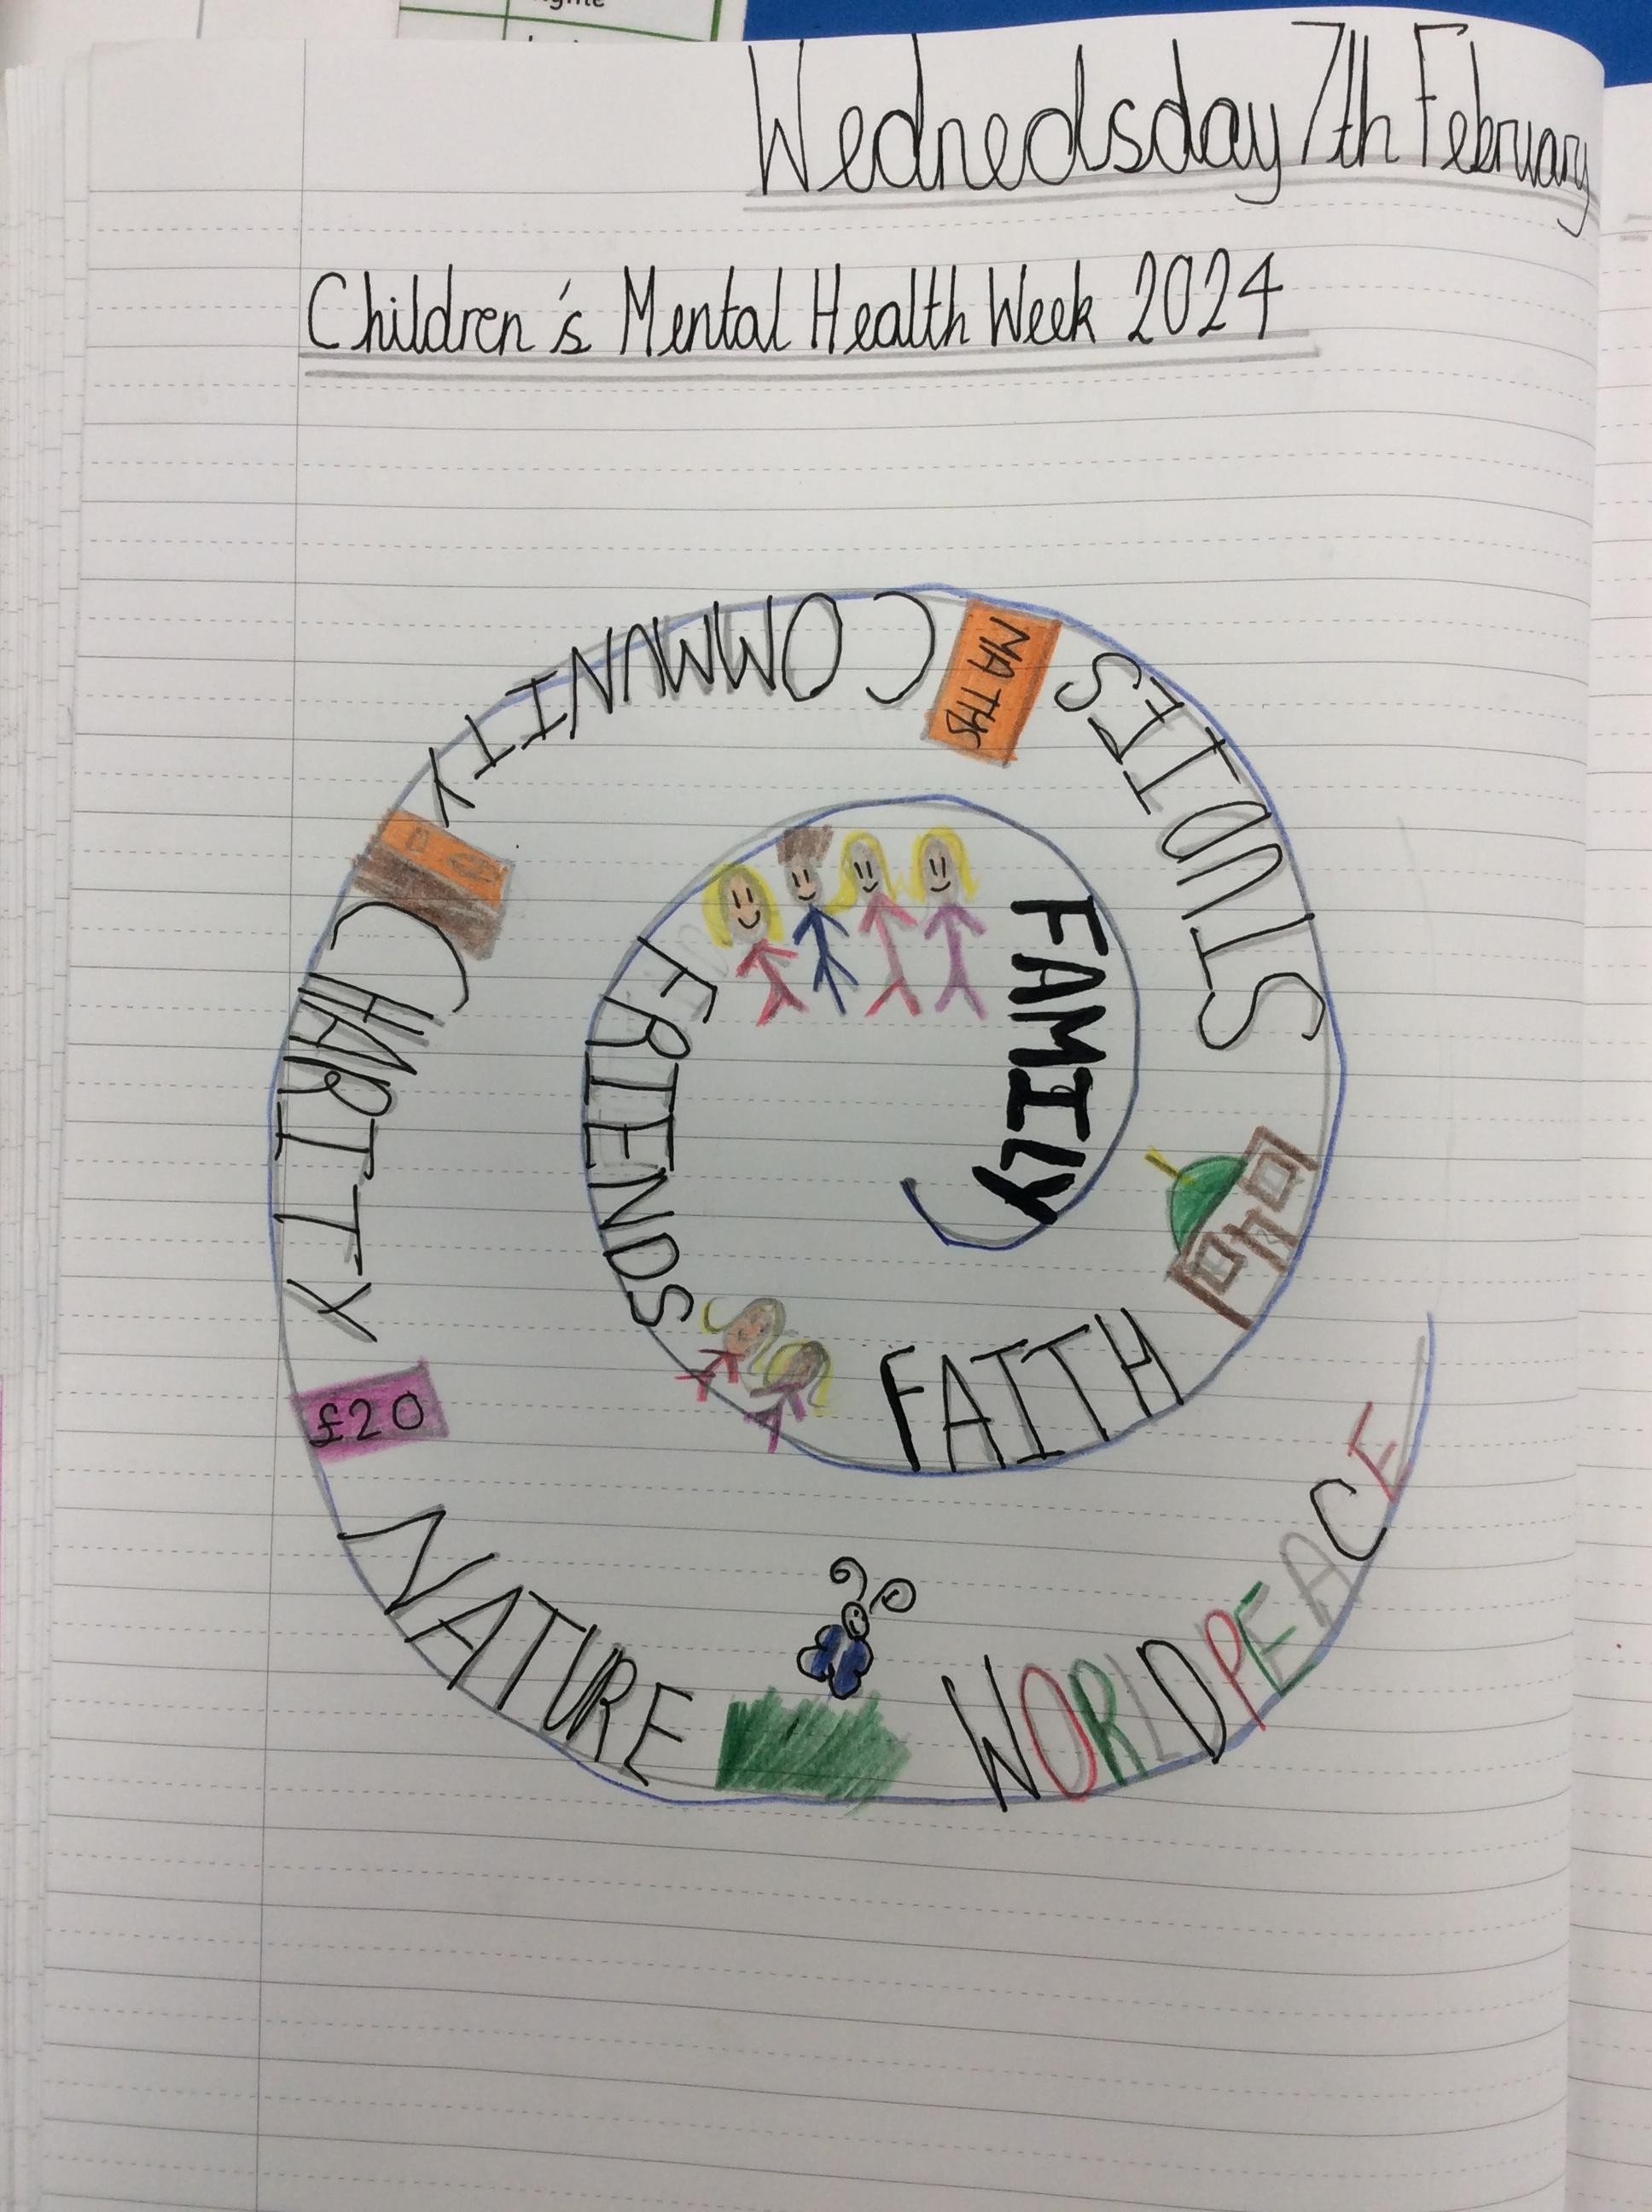 Wednedsday 7th February
Children's Mental Health Week 2024
FAMILY
FRIENDS
FAITH
STUDIES
MATHS
COMMUNITY
CHARITY
£20
NATURE
WORLD PEACE